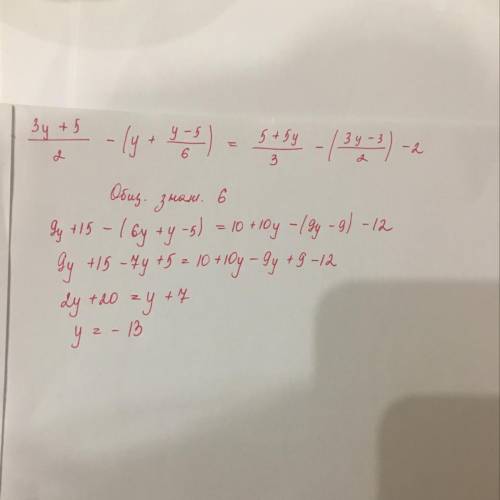 (3y + 5)/2 - (y + (y - 5)/6) = (5 + 5y)/3 - ((3y - 3)/2) - 2
Общ. знам. 6
9y + 15 - (6y + y - 5) = 10 + 10y - (9y - 9) - 12
9y + 15 - 7y + 5 = 10 + 10y - 9y + 9 - 12
2y + 20 = y + 7
y = - 13